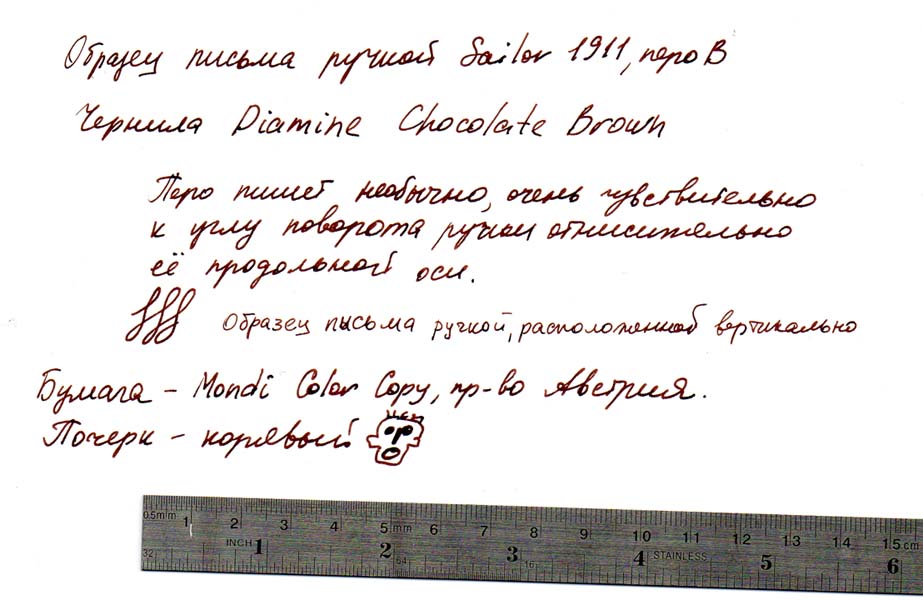 Образец письма ручкой Sailor 1911, перо В
Чернила Diamine Chocolate Brown
Перо пишет необычно, очень чувствительно
к углу поворота ручки относительно
её продольной оси.
Образец письма ручкой, расположенной вертикально
Бумага – Mondi Color Copy, пр-во Австрия.
Почерк – корявый!
0.5mm 1 2 3 4 5 mm 6 7 8 9 10 11 12 13 14 15 cm
INCH 1 2 3 4 STAINLESS 5 6
32 64 16